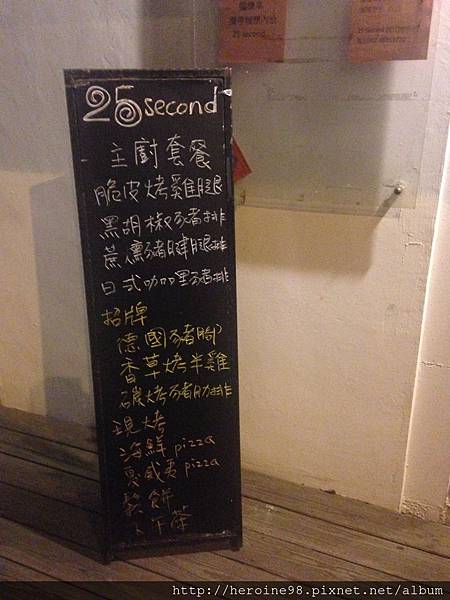 25 second
25 second
主廚套餐
脆皮烤雞腿
黑胡椒豬排
蔗燻豬腱腿排
日式咖哩豬排
招牌
德國豬腳
香草烤半雞
碳烤豬肋排
現烤
海鮮 pizza
夏威夷 pizza
鬆餅
下午茶
http://heroine98.pixnet.net/album